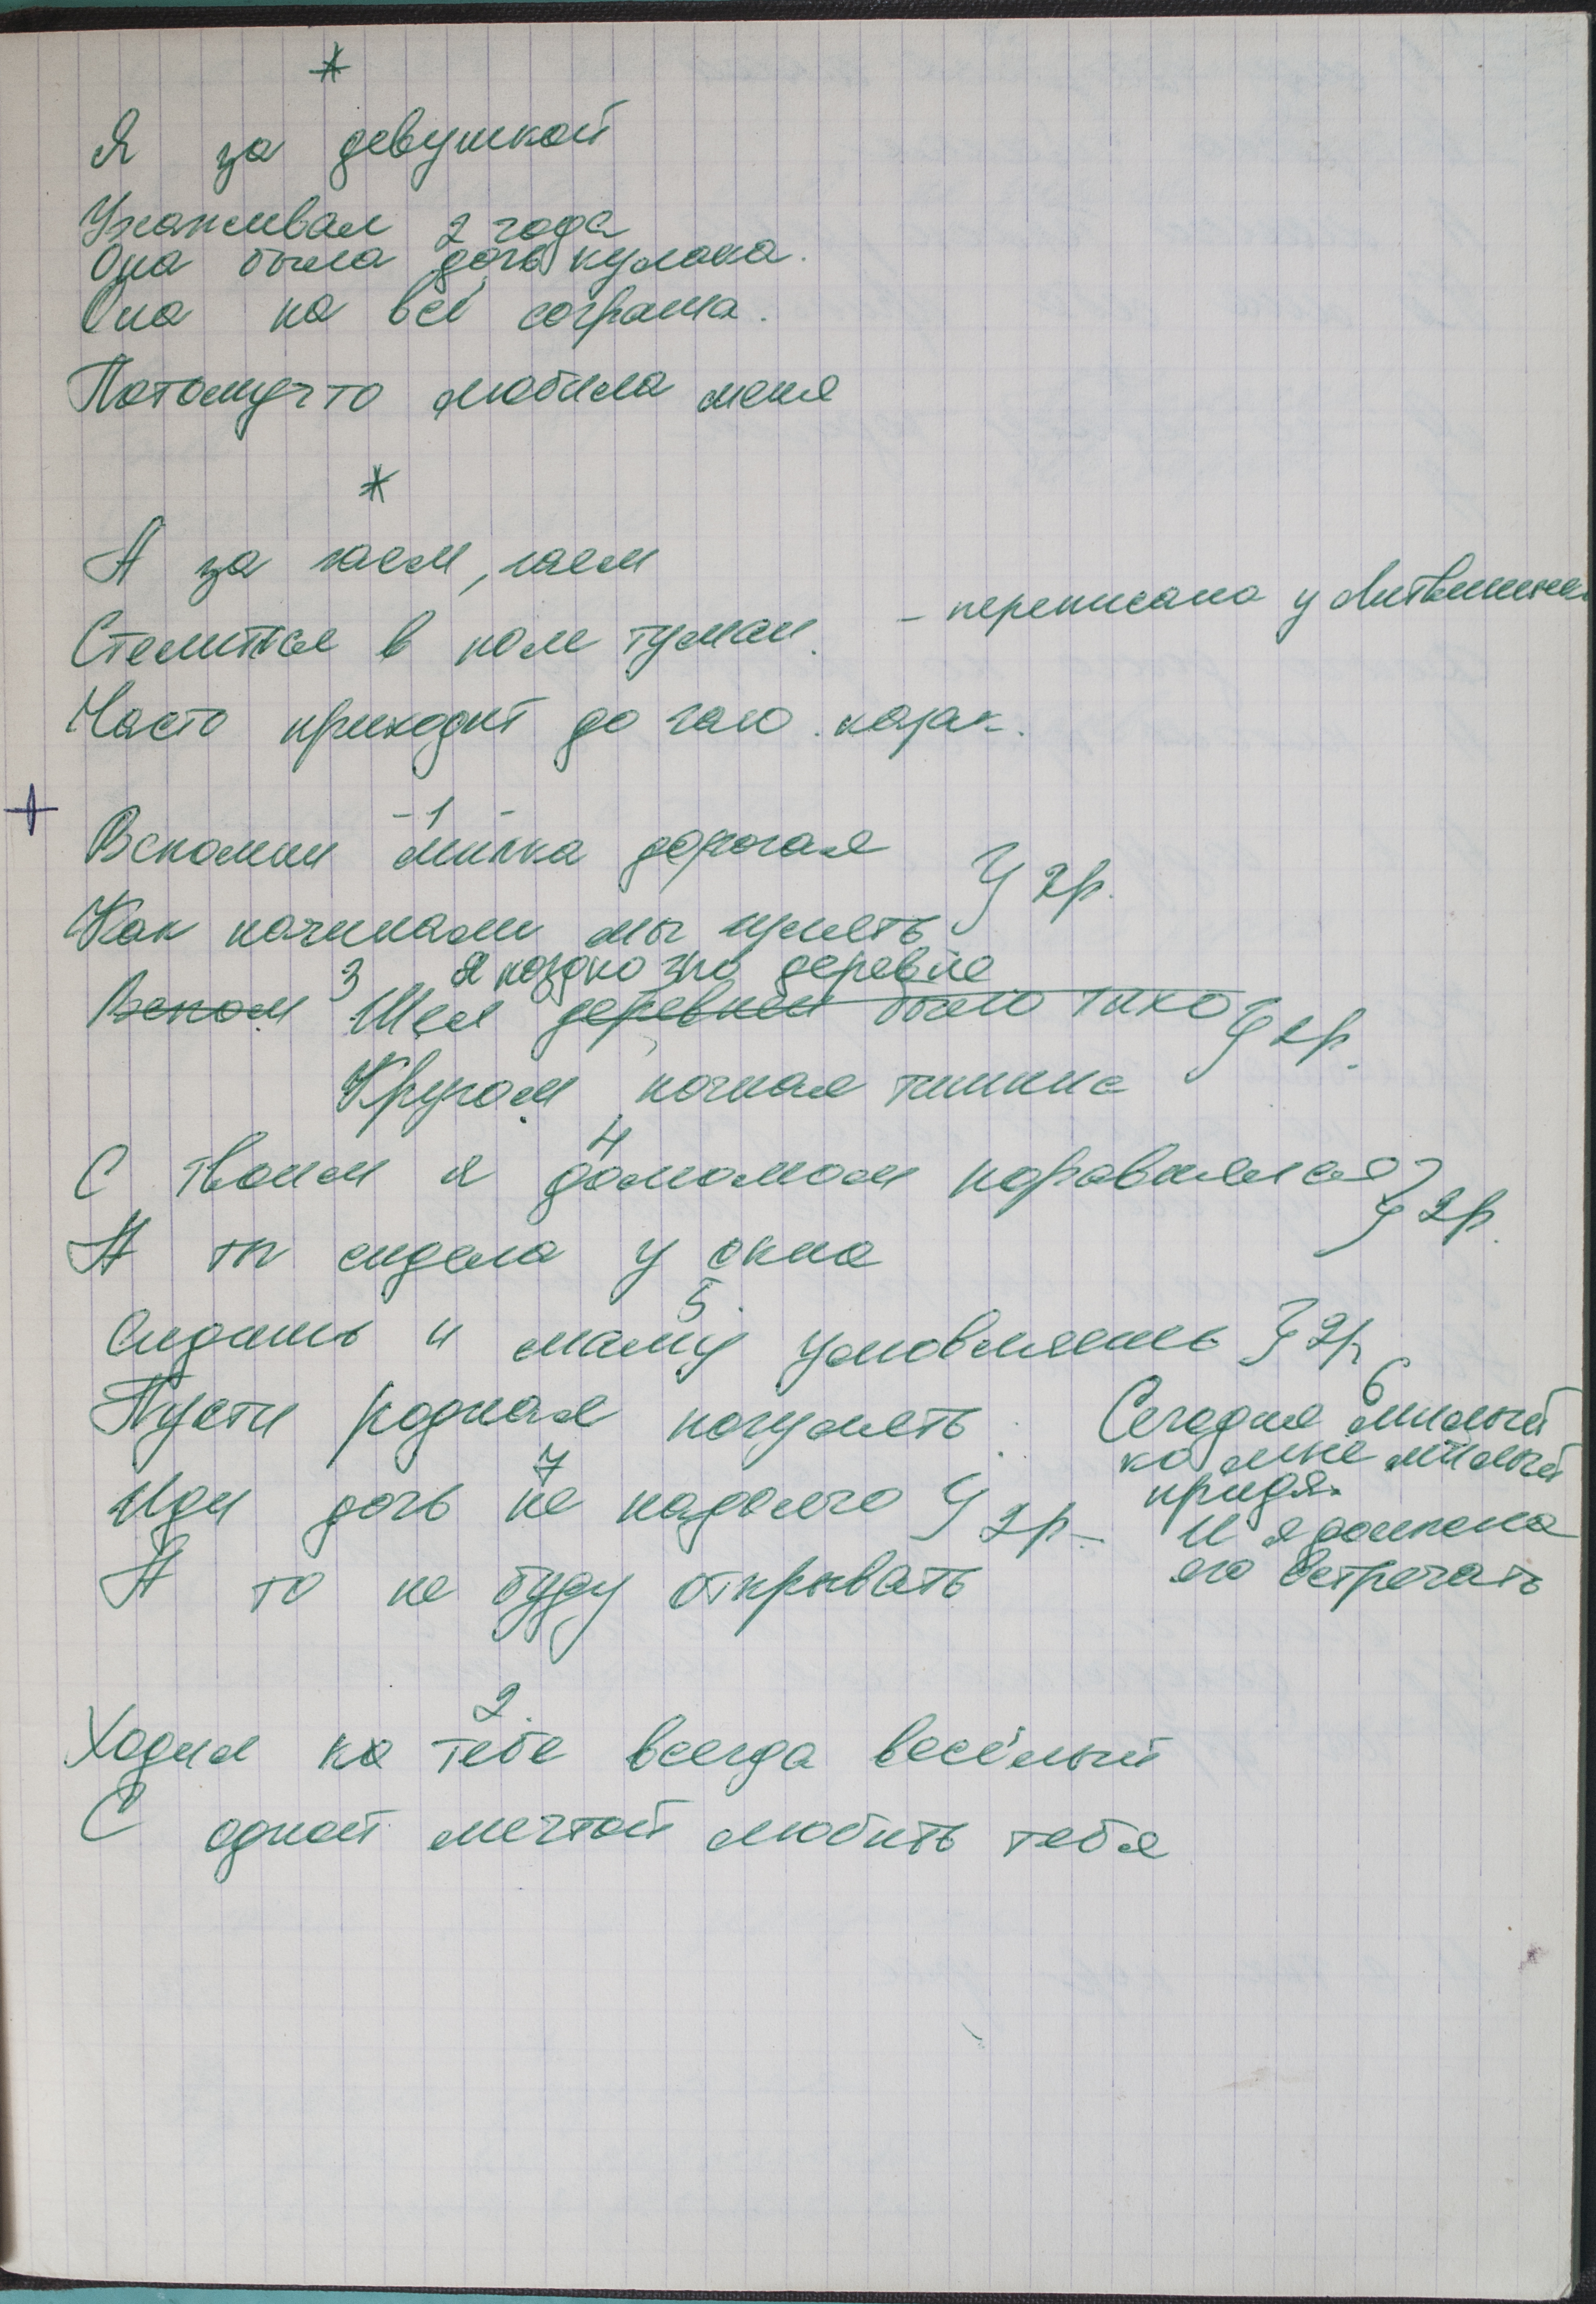 *
Я за девушкой
Ухаживал 2 года
Она была дочь кулака.
Она на всё согрьша.
Потомучто любила меня
*
А за гаем, гаем
Стелиться в поле туман.
- переписана у Литвиненко
Часто приходит до гаю козак.
+
- 1 -
Вспомни милка дорогая } 2р.
Как начинали мы гулять
3 Я поздно по деревне
Вспом Шел деревней было тихо } 2р.
Кругом ночная тишина
4
С твоим я домомом поравнялся } 2р.
А ты сидела у окна
5.
Сидишь и маму умовляешь } 2р.
Пусти родная погулять.
6
Сегодня милый
ко мне милый
придя.
И я должена
его встречать
7
Иди дочь не надолго } 2р.
А то не буду открывать
2.
Ходил ко тебе всегда весёлый
С одной мечтой любить тебя